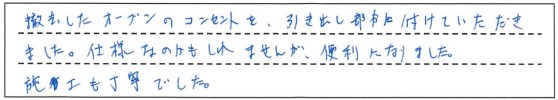 撤去したオーブンのコンセントを、引き出し部分に付けていただき
ました。仕様なのかもしれませんが、便利になりました。
施工も丁寧でした。